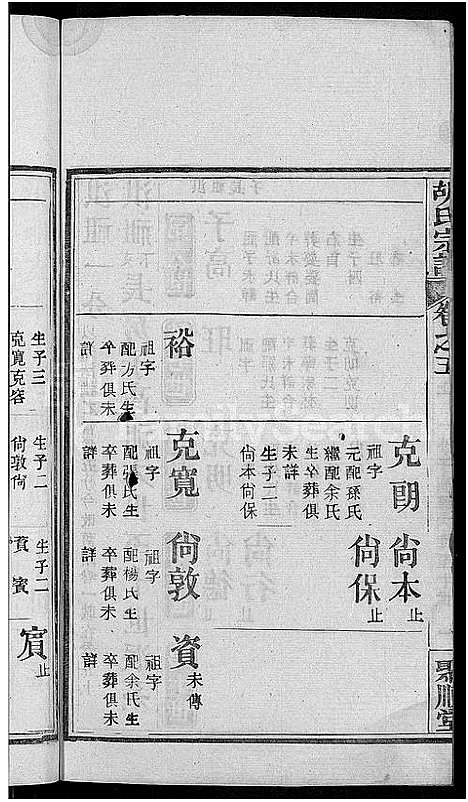 胡氏宗譜
卷之五
聚順堂
克朗
祖字
元配孫氏
繼配余氏
生卒葬俱
未詳
生子二
尙本尙保
尙本止
尙保止
裕
祖字
配方氏生
卒葬俱未
詳
克寬
祖字
配張氏生
卒葬俱未
詳
尙敦
祖字
配楊氏生
卒葬俱未
詳
資未傳
祖字
配余氏生
卒葬俱未
詳
生子三
克寬克容
生子二
尙敦尙
生子二
資賓
賓止